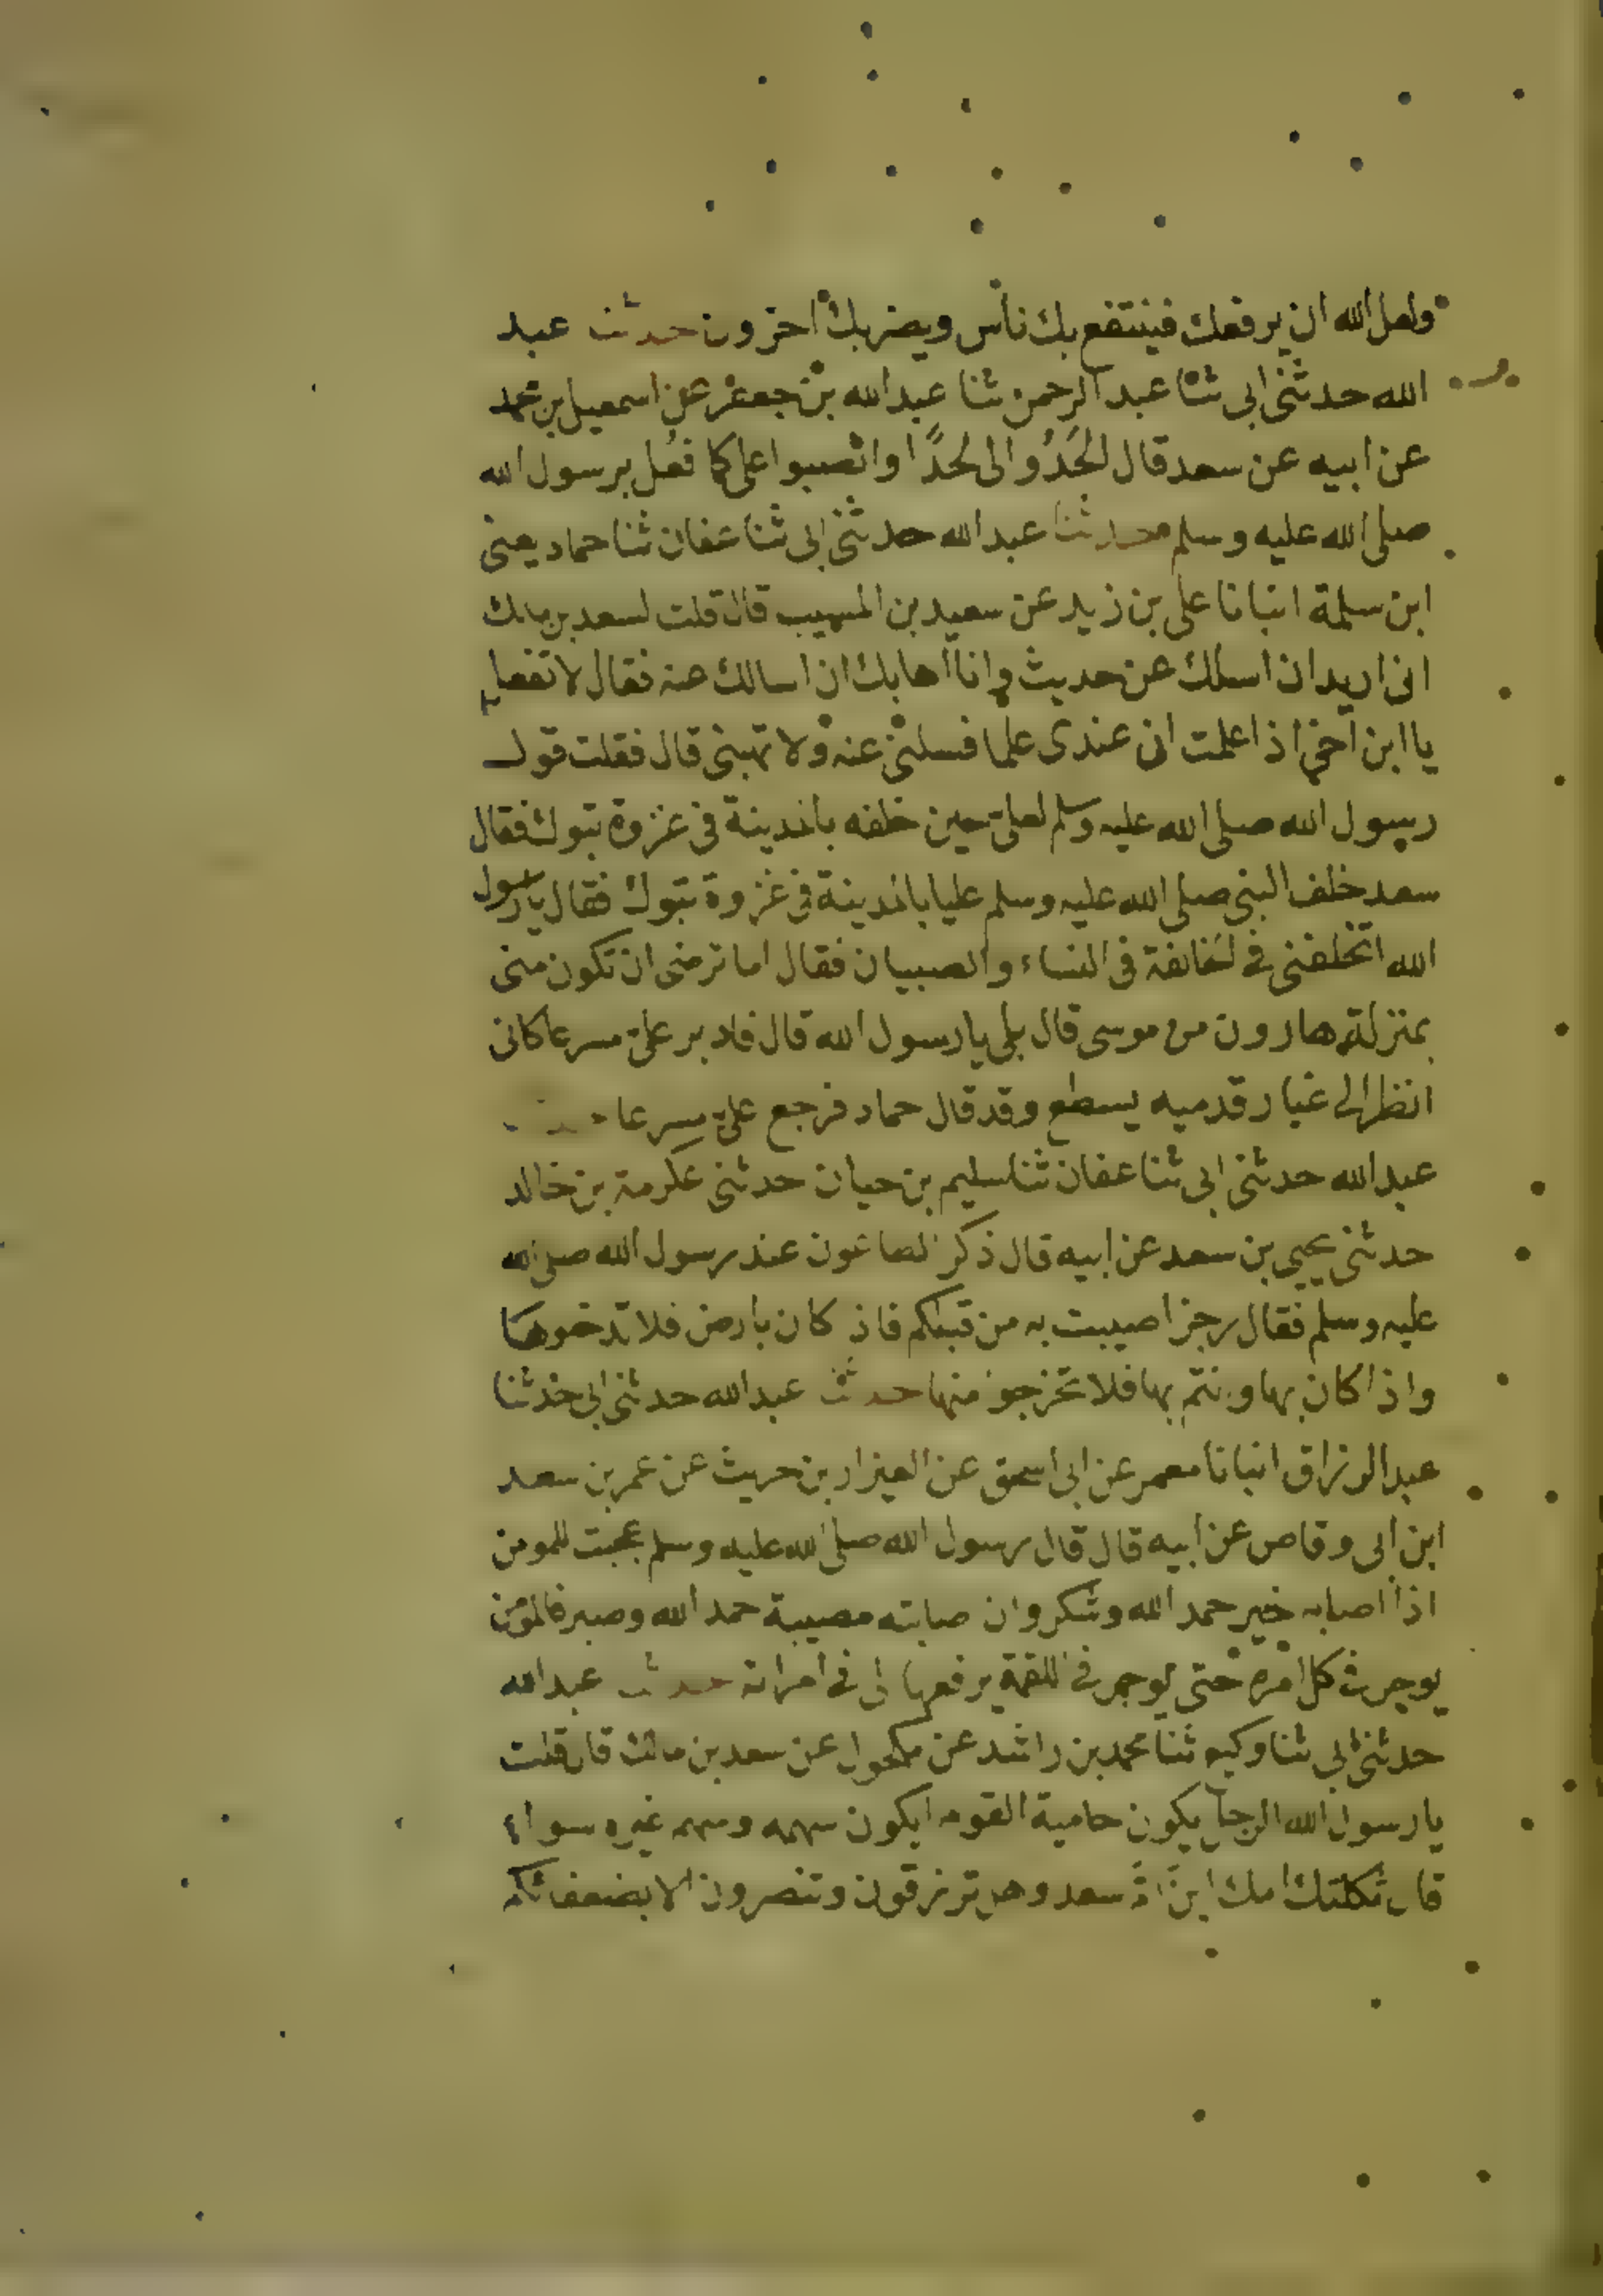 ولعل الله ان يرفعك فينتفع بك ناس ويضربك اخرون حدثنا عبد
الله حدثنى ابى ثنا عبد الرحمن ثنا عبد الله بن جعفر عن اسمعيل بن محمد
عن ابيه عن سعد قال الحَدُوا لى لحدًا وانصبوا على كما فعل برسول الله
صلى الله عليه وسلم حدثنا عبد الله حدثنى ابى ثنا عفان ثنا حماد يعنى
ابن سلمة انبانا على بن زيد عن سعيد بن المسيب قال قلت لسعد بن مالك
انى اريد ان اسلك عن حديث وانا اهابك ان اسالك عنه فقال لا تفعل
يا ابن اخى اذا علمت ان عندى علما فسلنى عنه ولا تهبنى قال فقلت قول
رسول الله صلى الله عليه وسلم لعلى حين خلفه بالمدينة فى غزوة تبوك فقال
سعد خلف النبى صلى الله عليه وسلم عليا بالمدينة فى غزوة تبوك فقال يا رسول
الله اتخلفنى فى الخالفة فى النساء والصبيان فقال اما ترضى ان تكون منى
بمنزلة هارون من موسى قال بلى يا رسول الله قال فادبر على مسرعا كانى
انظر الى غبار قدميه يسطع وقد قال حماد فرجع على مسرعا
عبد الله حدثنى ابى ثنا عفان ثنا سليم بن حيان حدثنى عكرمة بن خالد
حدثنى يحيى بن سعد عن ابيه قال ذكر الطاعون عند رسول الله صلى الله
عليه وسلم فقال رجز اصيبت به من قبلكم فاذا كان بارض فلا تدخلوها
واذا كان بها وانتم بها فلا تخرجوا منها حدثنا عبد الله حدثنى ابى حدثنا
عبد الرزاق انبانا معمر عن ابى اسحق عن العيزار بن حريث عن عمر بن سعد
ابن ابى وقاص عن ابيه قال قال رسول الله صلى الله عليه وسلم عجبت للمومن
اذا اصابه خير حمد الله وشكر وان اصابته مصيبة حمد الله وصبر فالمؤمن
يوجر فى كل امره حتى يوجر فى اللقمة يرفعها الى فى امراته حدثنا عبد الله
حدثنى ابى ثنا وكيع ثنا محمد بن راشد عن مكحول عن سعد بن مالك قال قلت
يا رسول الله الرجل يكون حامية القوم ايكون سهمه وسهم غيره سواء
قال ثكلتك امك ابن ام سعد وهل ترزقون وتنصرون الا بضعفائكم